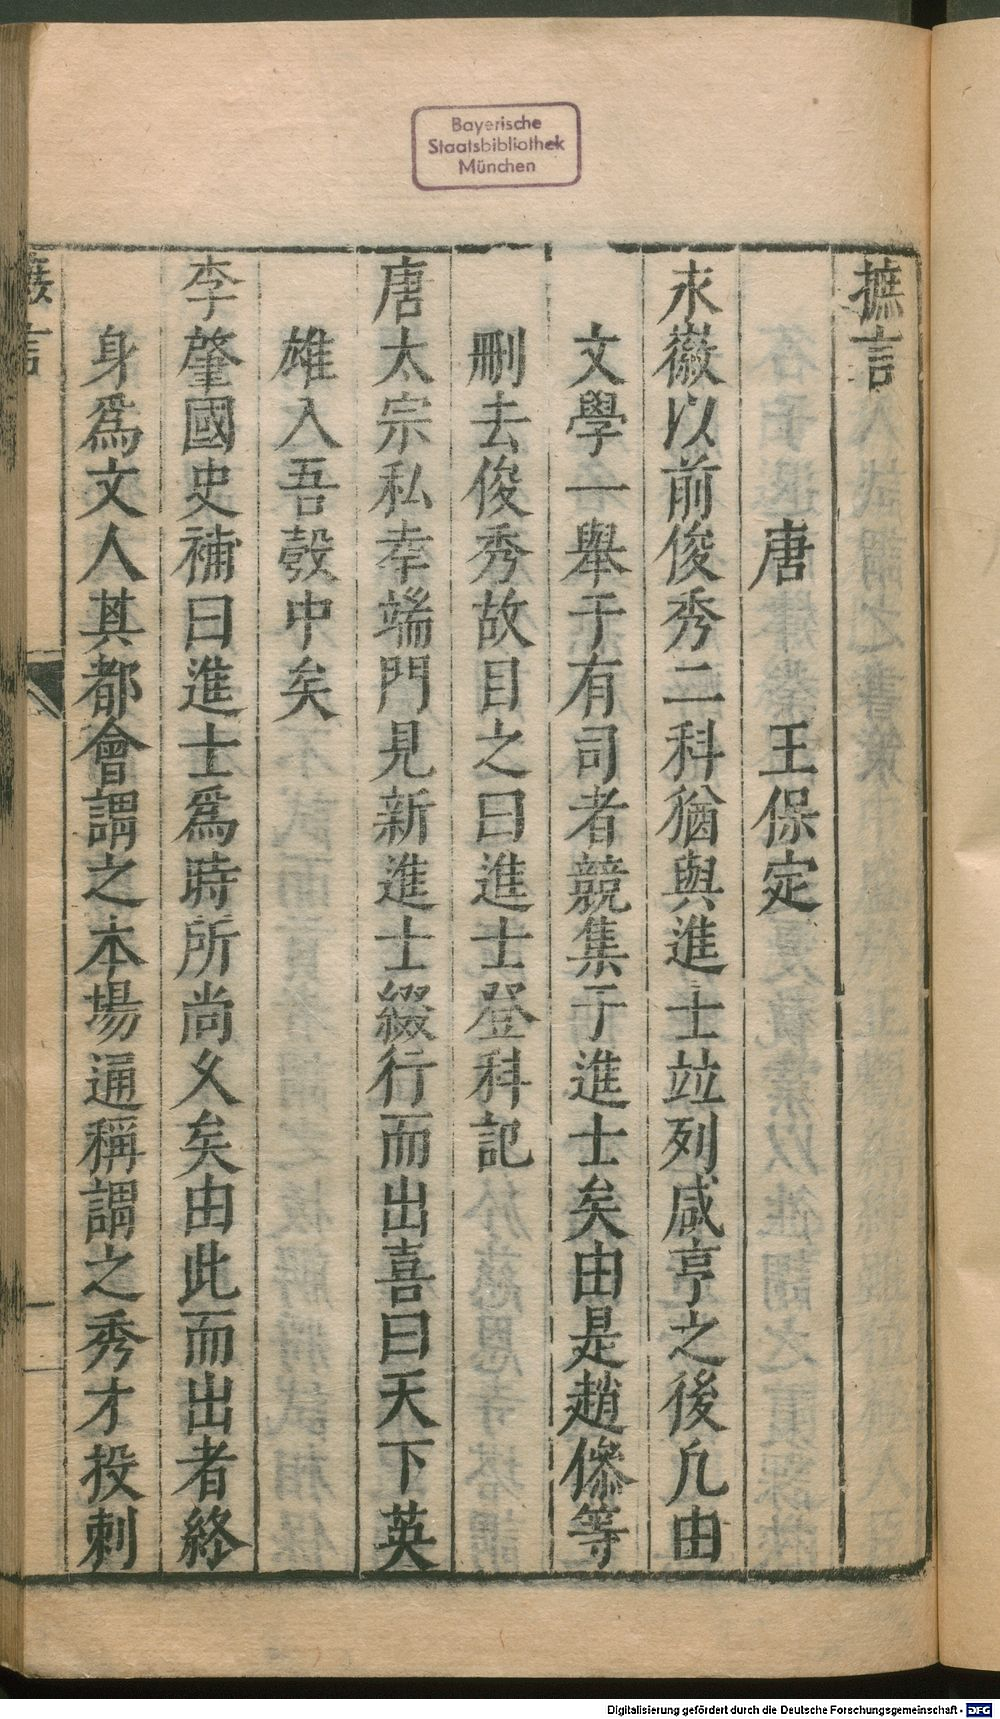 Bayerische
Staatsbibliothek
München
摭言
唐 王保定
永徽以前俊秀二科猶與進士竝列咸亨之後凡由
文學一舉于有司者競集于進士矣由是趙傪等
刪去俊秀故目之曰進士登科記
唐太宗私幸端門見新進士綴行而出喜曰天下英
雄入吾彀中矣
李肇國史補曰進士爲時所尚久矣由此而出者終
身爲文人其都會謂之本場通稱謂之秀才投刺
摭言
一
Digitalisierung gefördert durch die Deutsche Forschungsgemeinschaft - DFG